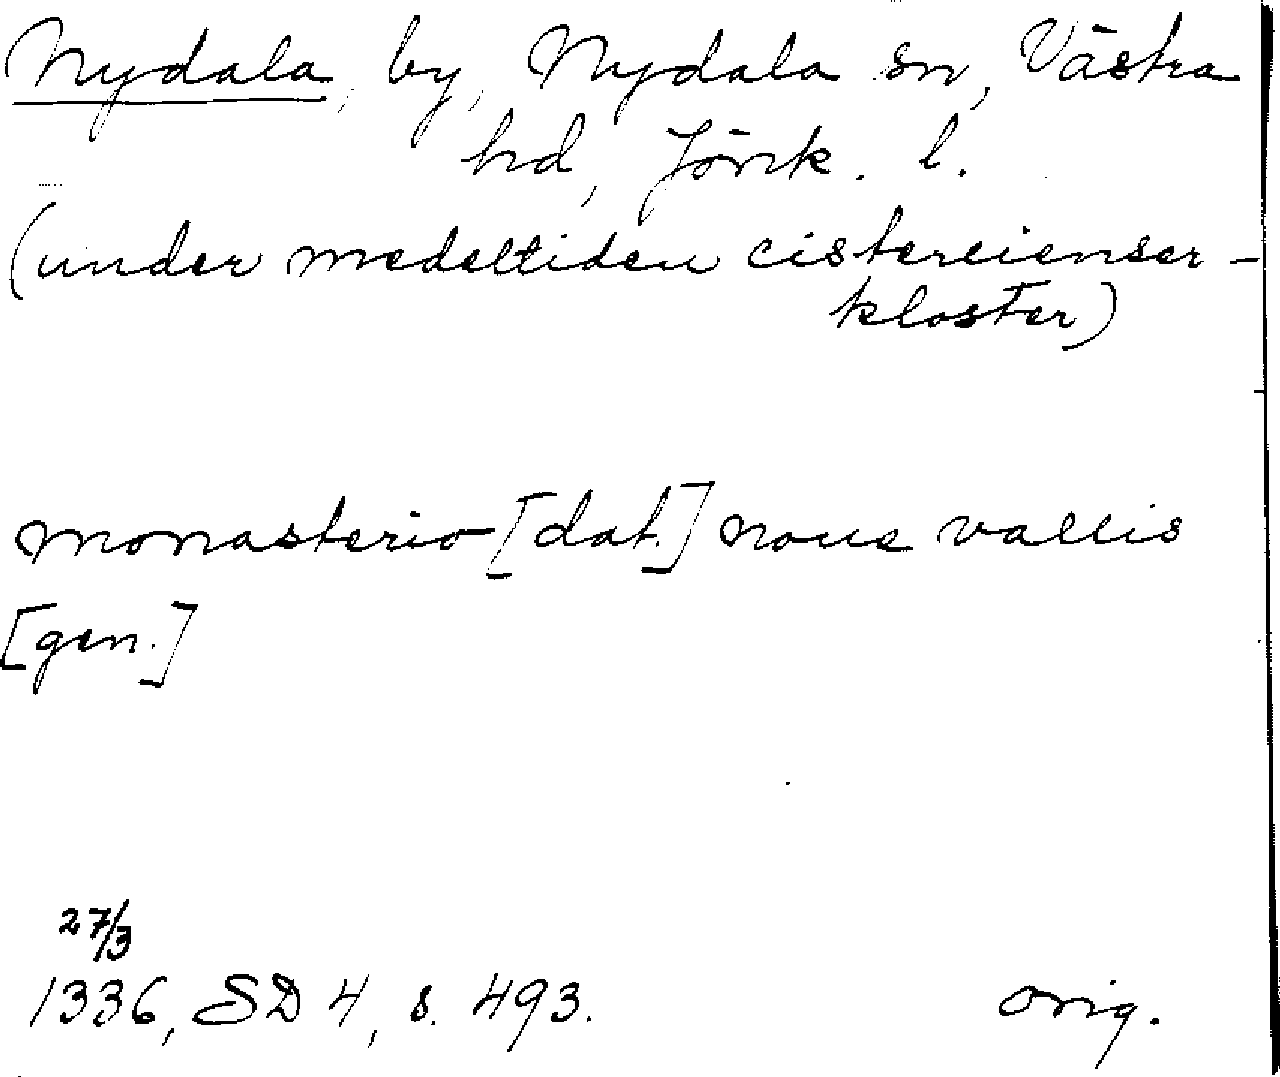 Nydala, by, Nydala sn, Västra
hd, Jönk. l.
(under medeltiden cistercienser-
kloster)
monasterio [dat.] noue vallis
[gen.]
27/3
1336, SD 4, s. 493.
orig.